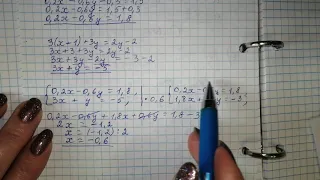 0,2x-0,6y-0,3=1,5
0,2x-0,6y=1,5+0,3
0,2x-0,6y=1,8
3(x+1)+3y=2y-2
3x+3+3y=2y-2
3x+3y-2y=-3-2
3x+y=-5
{0,2x-0,6y=1,8, | {0,2x-0,6y=1,8
{3x+y=-5, | ·0,6 {1,8x+ =-3,
0,2x-0,6y+1,8x+0,6y=1,8-3
2x=-1,2
x=(-1,2):2
x=-0,6